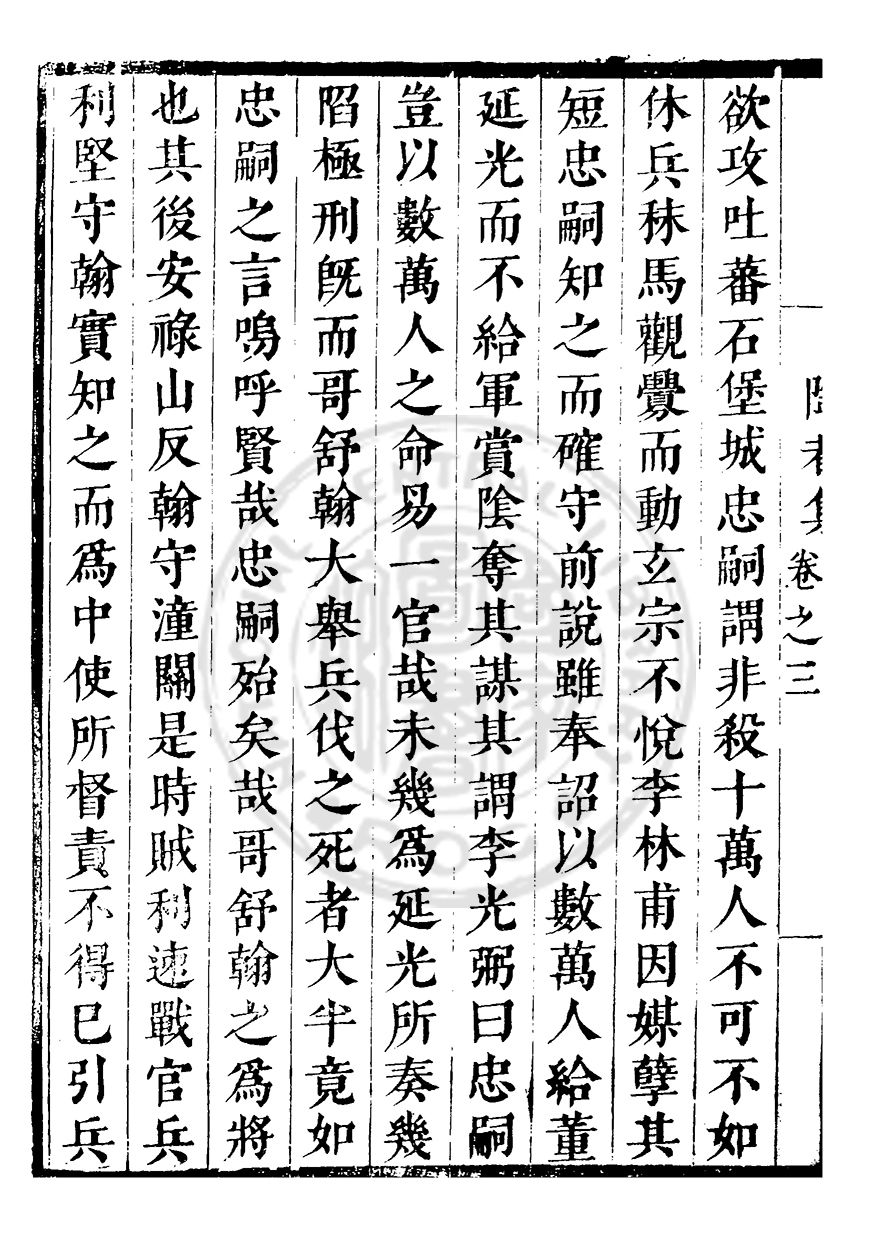 欲攻吐蕃石堡城忠嗣謂非殺十萬人不可不如
休兵秣馬觀釁而動玄宗不悅李林甫因媒孽其
短忠嗣知之而確守前說雖奉詔以數萬人給董
延光而不給軍賞陰奪其謀其謂李光弼曰忠嗣
豈以數萬人之命易一官哉未幾爲延光所奏幾
陷極刑旣而哥舒翰大舉兵伐之死者大半竟如
忠嗣之言嗚呼賢哉忠嗣殆矣哉哥舒翰之爲將
也其後安祿山反翰守潼關是時賊利速戰官兵
利堅守翰實知之而爲中使所督責不得已引兵
卷之三